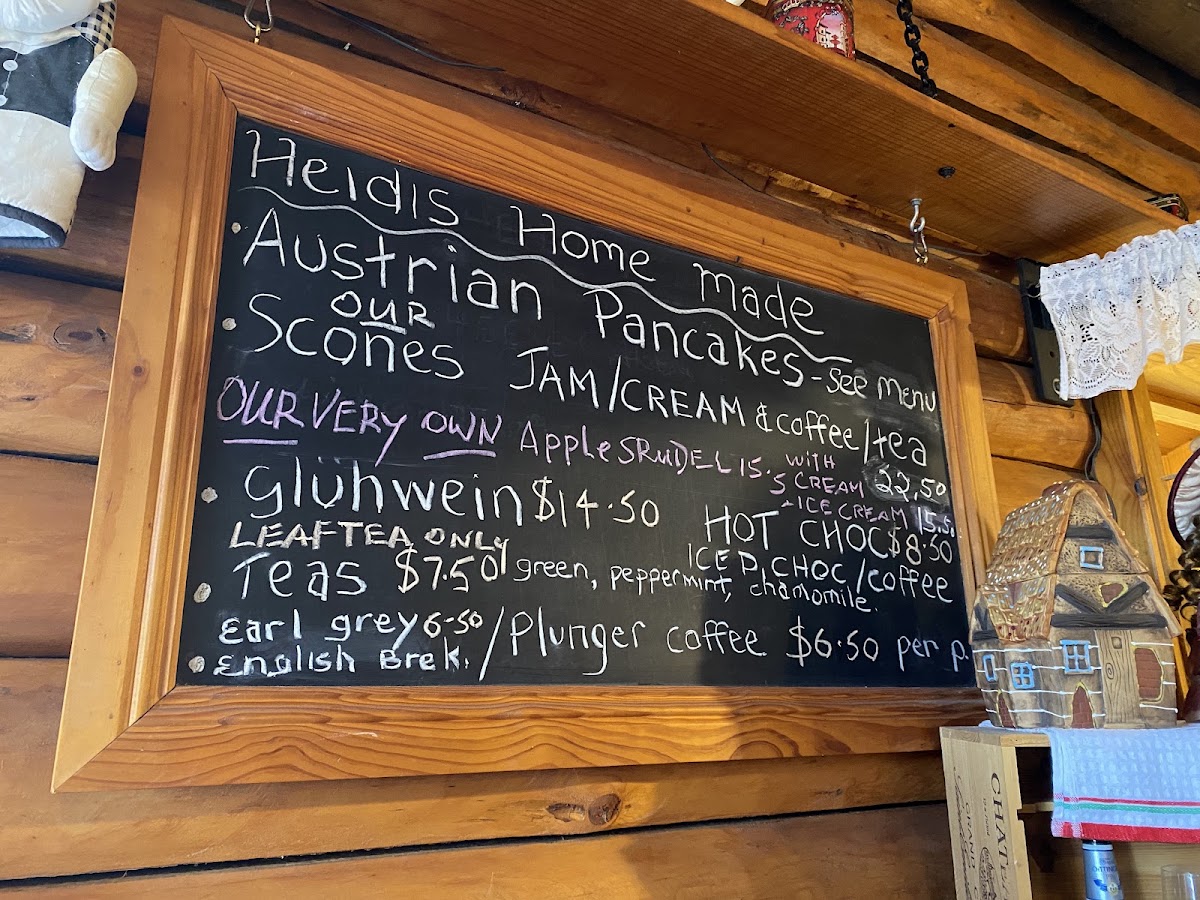 HeidIs Home made
Austrian Pancakes - See Menu
OUR
Scones JAM/CREAM & coffee/tea
22,50
OUR VERY OWN Apple SRUDEL 15.5
WITH
CREAM
- ICE CREAM 15.5.
Glühwein $14.50
HOT CHOC $8.50
ICED CHOC/coffee
LEAF TEA ONLY
Teas $7.50 green, peppermint, chamomile.
Earl grey 6-50 / Plunger coffee $6.50 per p.
English Brek.
CHATE
GRAND